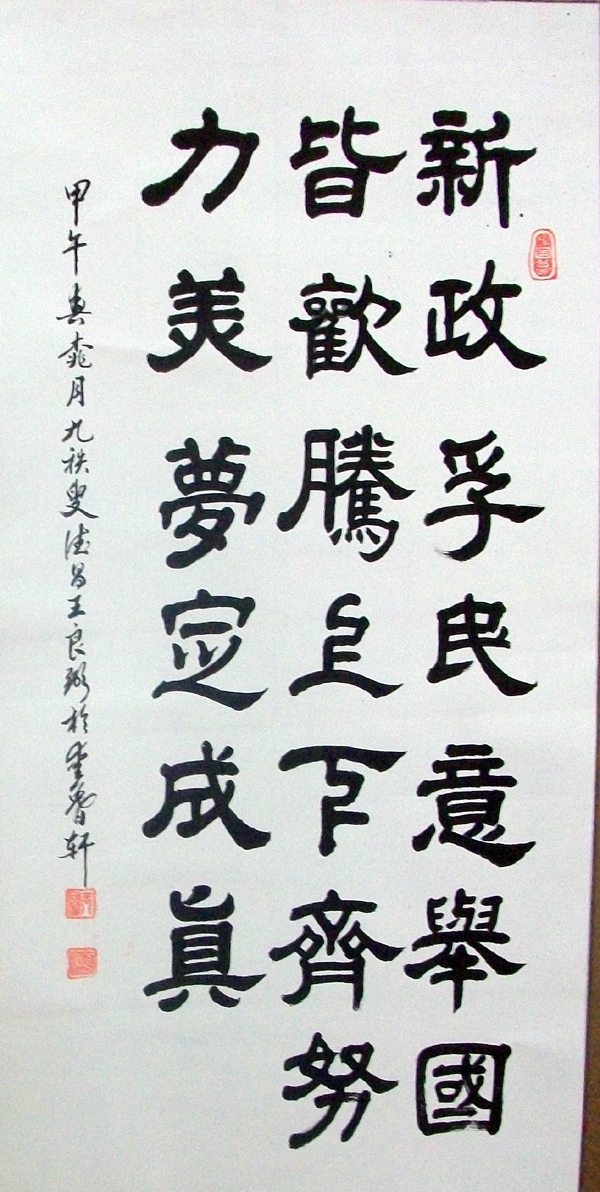 新政孚民意舉國
皆歡騰上下齊努
力美夢定成真
甲午桃月九秩叟德昌王良於軒